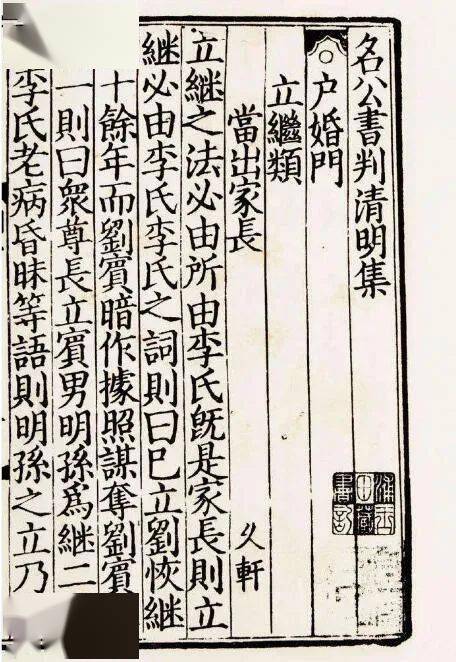 名公書判清明集
户婚門
立繼類
當出家長 乆軒
立繼之法必由所由李氏旣是家長則立
繼必由李氏李氏之詞則曰巳立劉恢繼
十餘年而劉賓暗作據照謀奪劉賓
一則曰衆尊長立賓男明孫爲繼二
李氏老病昏昧等語則明孫之立乃